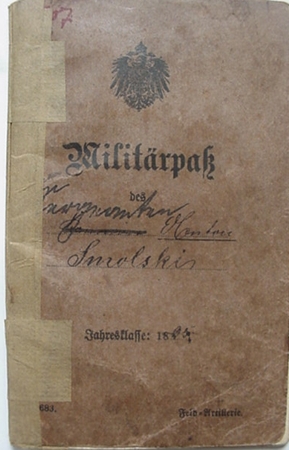 Militärpaß
des
Sergeanten
Smolski
Jahresklasse: 18
683. Feld-Artillerie.